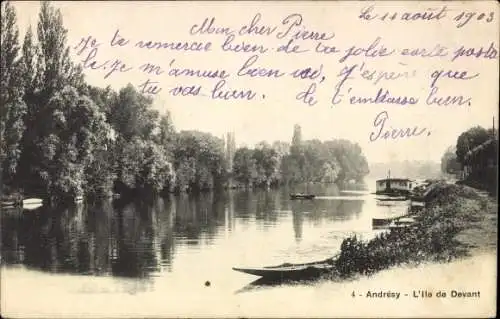 Le 11 août 1903
Mon cher Pierre
Je te remercie bien de ta jolie carte postale
Je m'amuse bien ici, j'espère que
tu vas bien. Je t'embrasse bien.
Pierre
4 - Andrésy - L'Ile de Devant